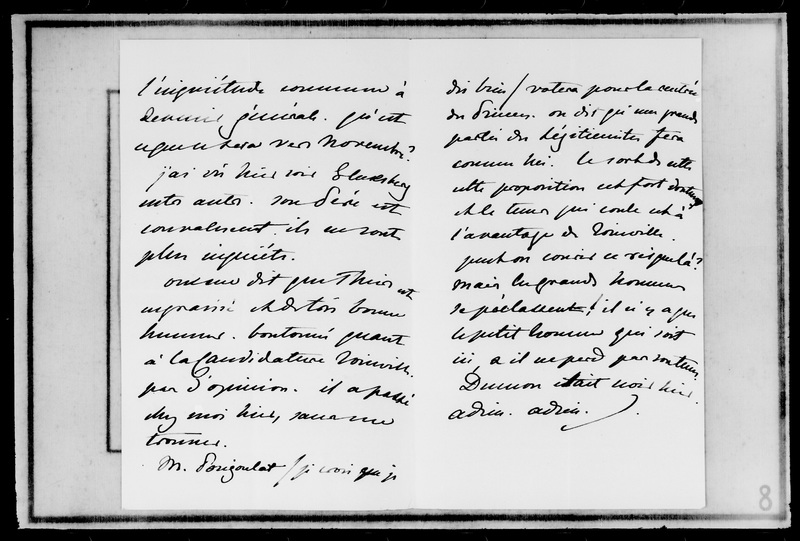 l'inquiétude commune à
devenir générale. qu'est
ce que ce sera vers Novembre?
j'ai vu hier soir Glucksberg
entre autres. son Père est
convalescent. ils ne sont
plus inquiets.
on me dit que Thiers est
engraissé et de très bonne
humeur. boutonné quant
à la Candidature Joinville.
pas d'opinion. il a passé
chez moi hier, sans me
trouver.
M. Poujoulat / je crois que je
dis bien / votera pour la rentrée
des Princes. on dit qu'une grande
partie des Légitimistes fera
comme lui. le sort de cette
cette proposition est fort douteux
et le tems qui coule est à
l'avantage de Joinville.
peut on concevoir ce
mais les grands hommes
se il n'y a que
le petit homme qui soit
ici, et il ne perd pas son tems.
Dumon était noir hier.
adieu. adieu.
8